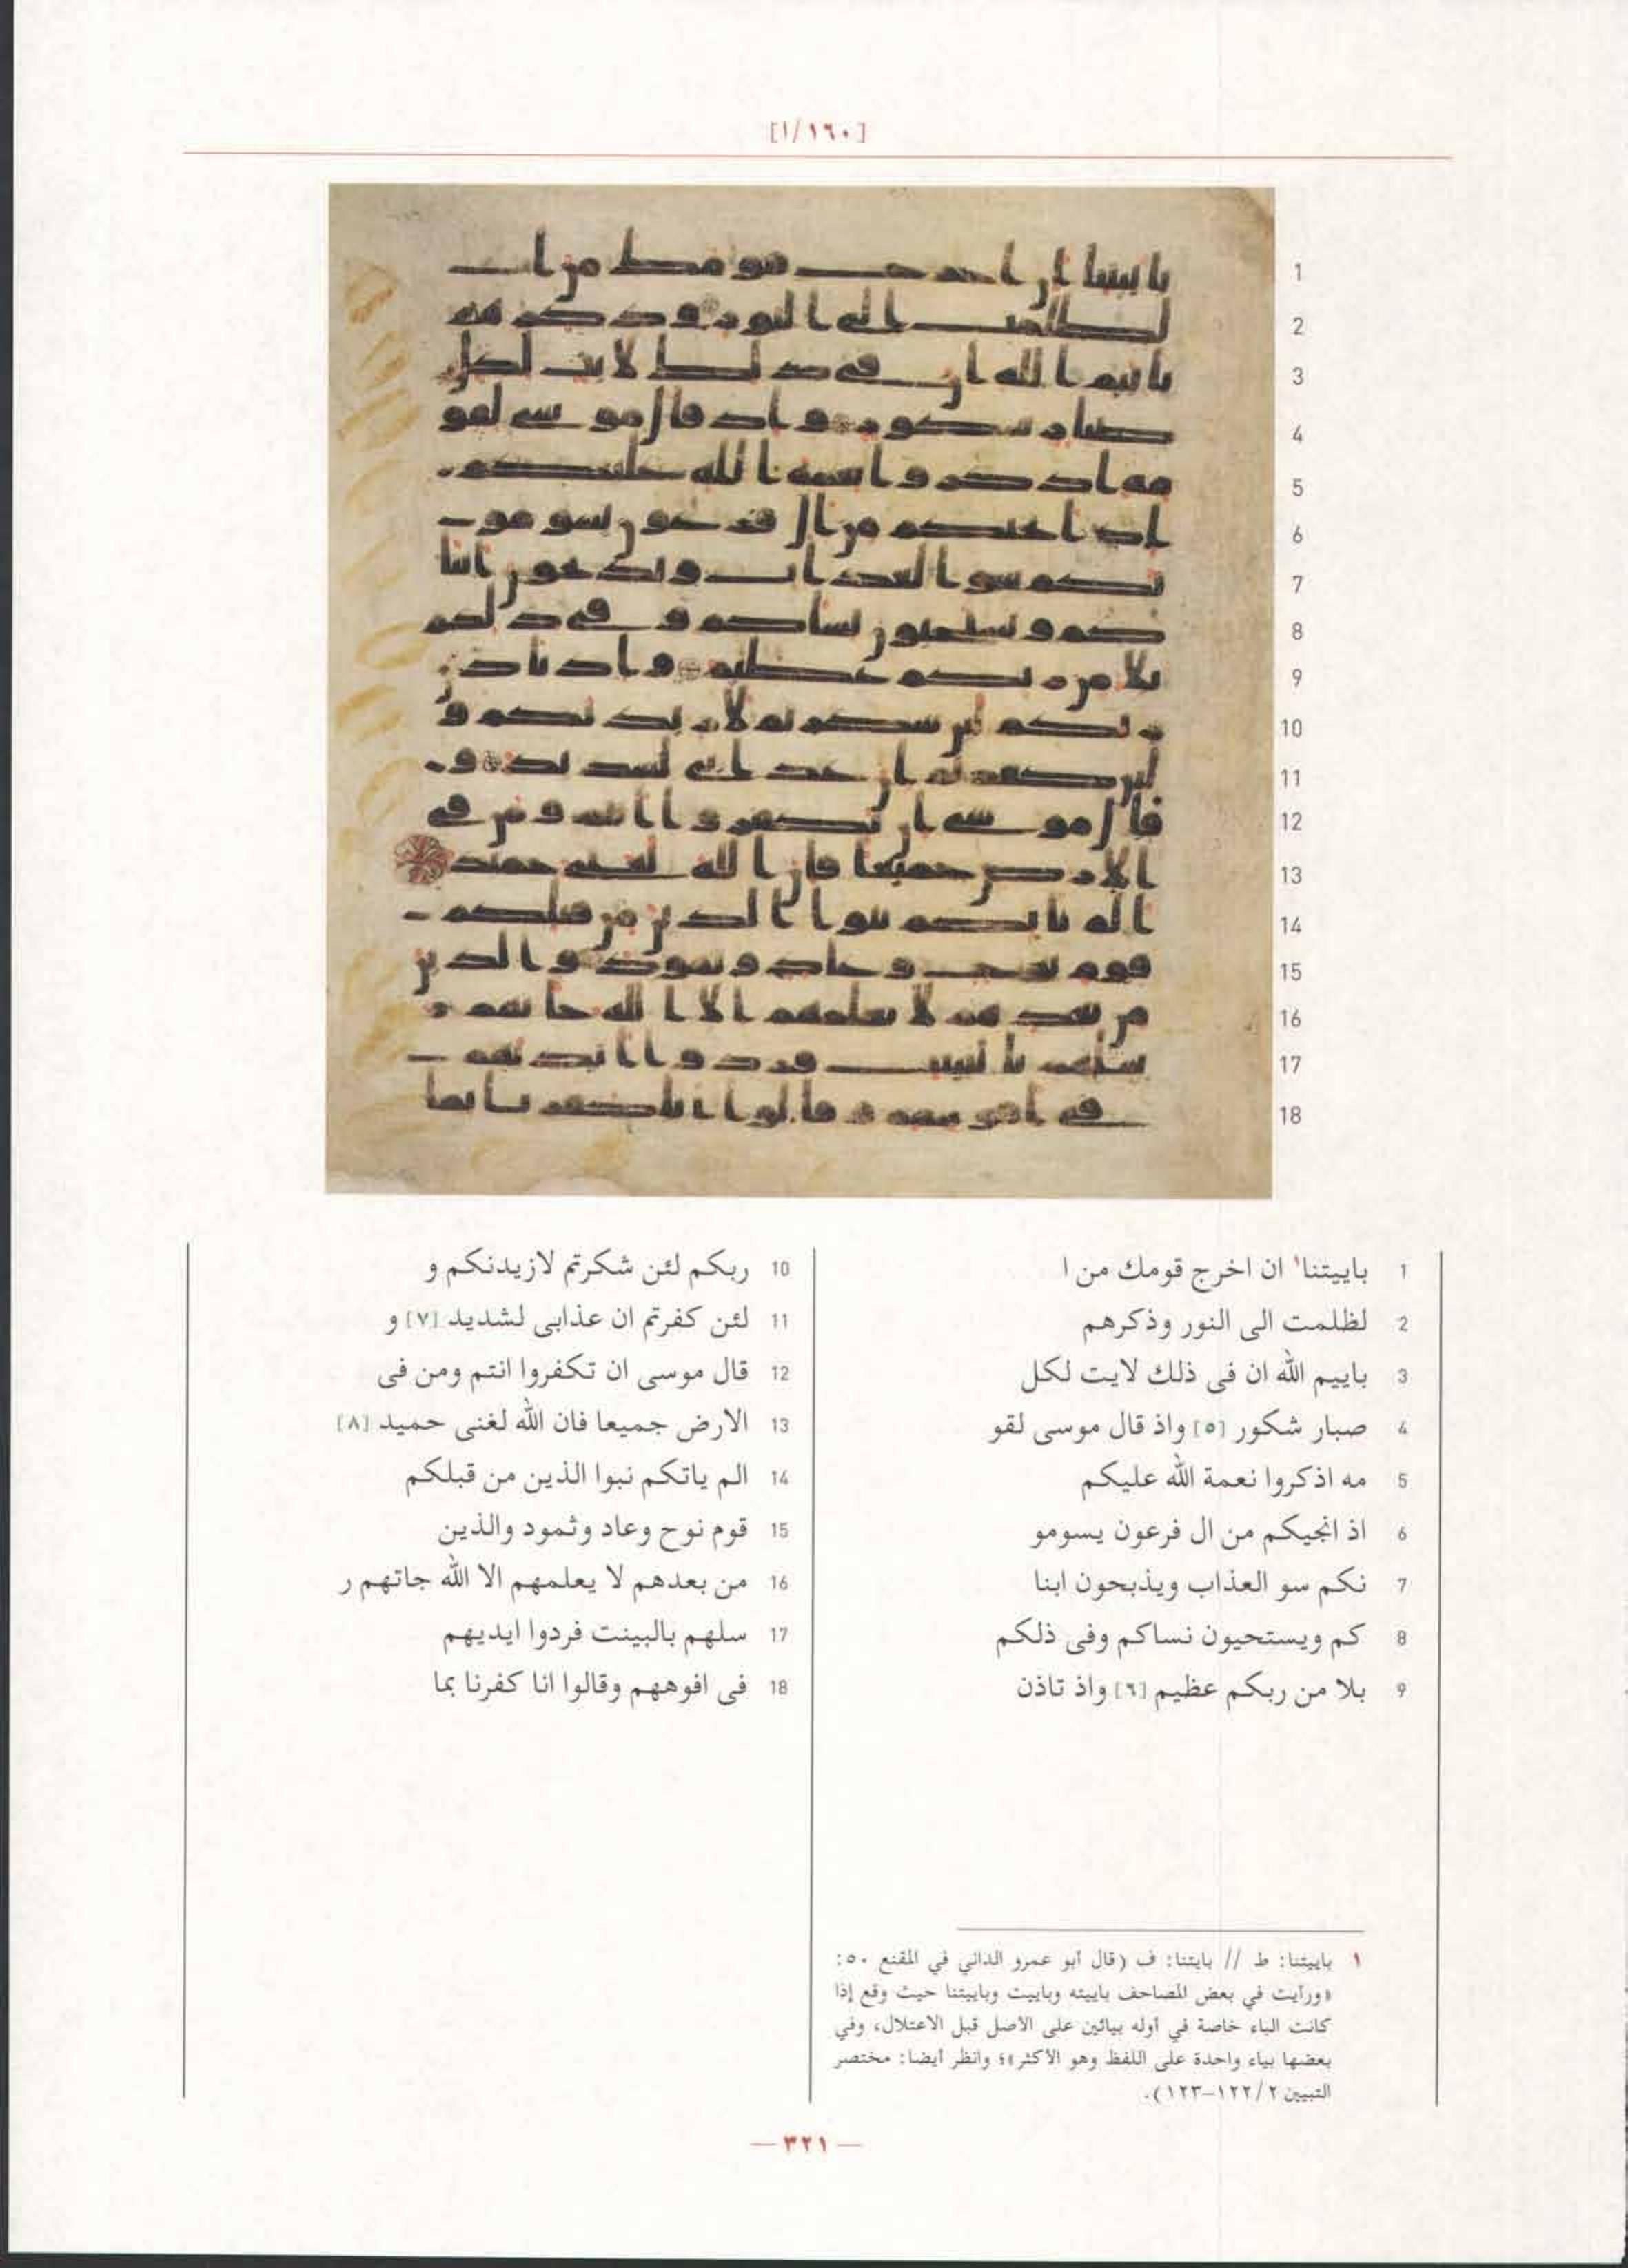 [١٦٠/١]
1
2
3
4
5
6
7
8
9
10
11
12
13
14
15
16
17
18
1 باييتنا١ ان اخرج قومك من ا
2 لظلمت الى النور وذكرهم
3 باييم الله ان فى ذلك لايت لكل
4 صبار شكور [٥] واذ قال موسى لقو
5 مه اذكروا نعمة الله عليكم
6 اذ انجيكم من ال فرعون يسومو
7 نكم سو العذاب ويذبحون ابنا
8 كم ويستحيون نساكم وفى ذلكم
9 بلا من ربكم عظيم [٦] واذ تاذن
10 ربكم لئن شكرتم لازيدنكم و
11 لئن كفرتم ان عذابى لشديد [٧] و
12 قال موسى ان تكفروا انتم ومن فى
13 الارض جميعا فان الله لغنى حميد [٨]
14 الم ياتكم نبوا الذين من قبلكم
15 قوم نوح وعاد وثمود والذين
16 من بعدهم لا يعلمهم الا الله جاتهم ر
17 سلهم بالبينت فردوا ايديهم
18 فى افوههم وقالوا انا كفرنا بما
١ باييتنا: ط // بايتنا: ف (قال أبو عمرو الداني في المقنع ٥٠:
«ورأيت في بعض المصاحف باييته وباييت وباييتنا حيث وقع إذا
كانت الباء خاصة في أوله بيائين على الأصل قبل الاعتلال، وفي
بعضها بياء واحدة على اللفظ وهو الأكثر»؛ وانظر أيضا: مختصر
التبيين ١٢٢/٢–١٢٣).
— ٣٢١ —